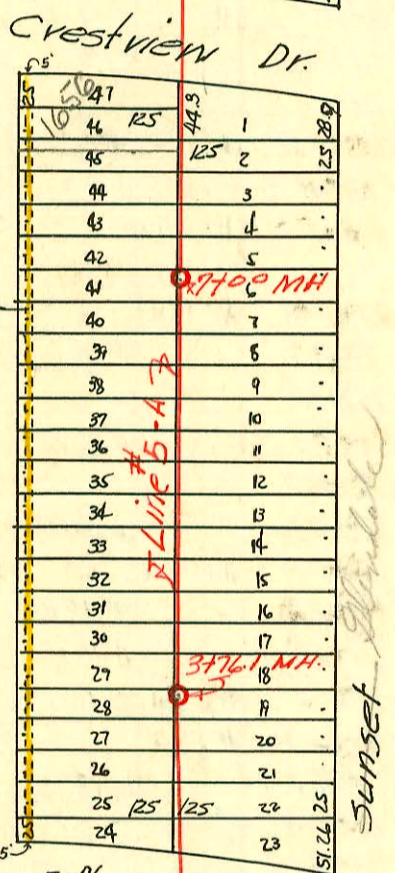 Crestview Dr.
5'
25 47 44.3 28.9
1656
46 125 1
45 125 2 25
44 3
43 4
42 5
41 7+00 MH 6
40 7
39 8
38 9
37 10
36 11
35 12
34 13
33 14
32 15
31 16
30 17
Line #5-A
29 3+76.1 MH. 18
28 19
27 20
26 21
25 125 125 22 25
25 24 23 51.26
5'
Sunset Glendale